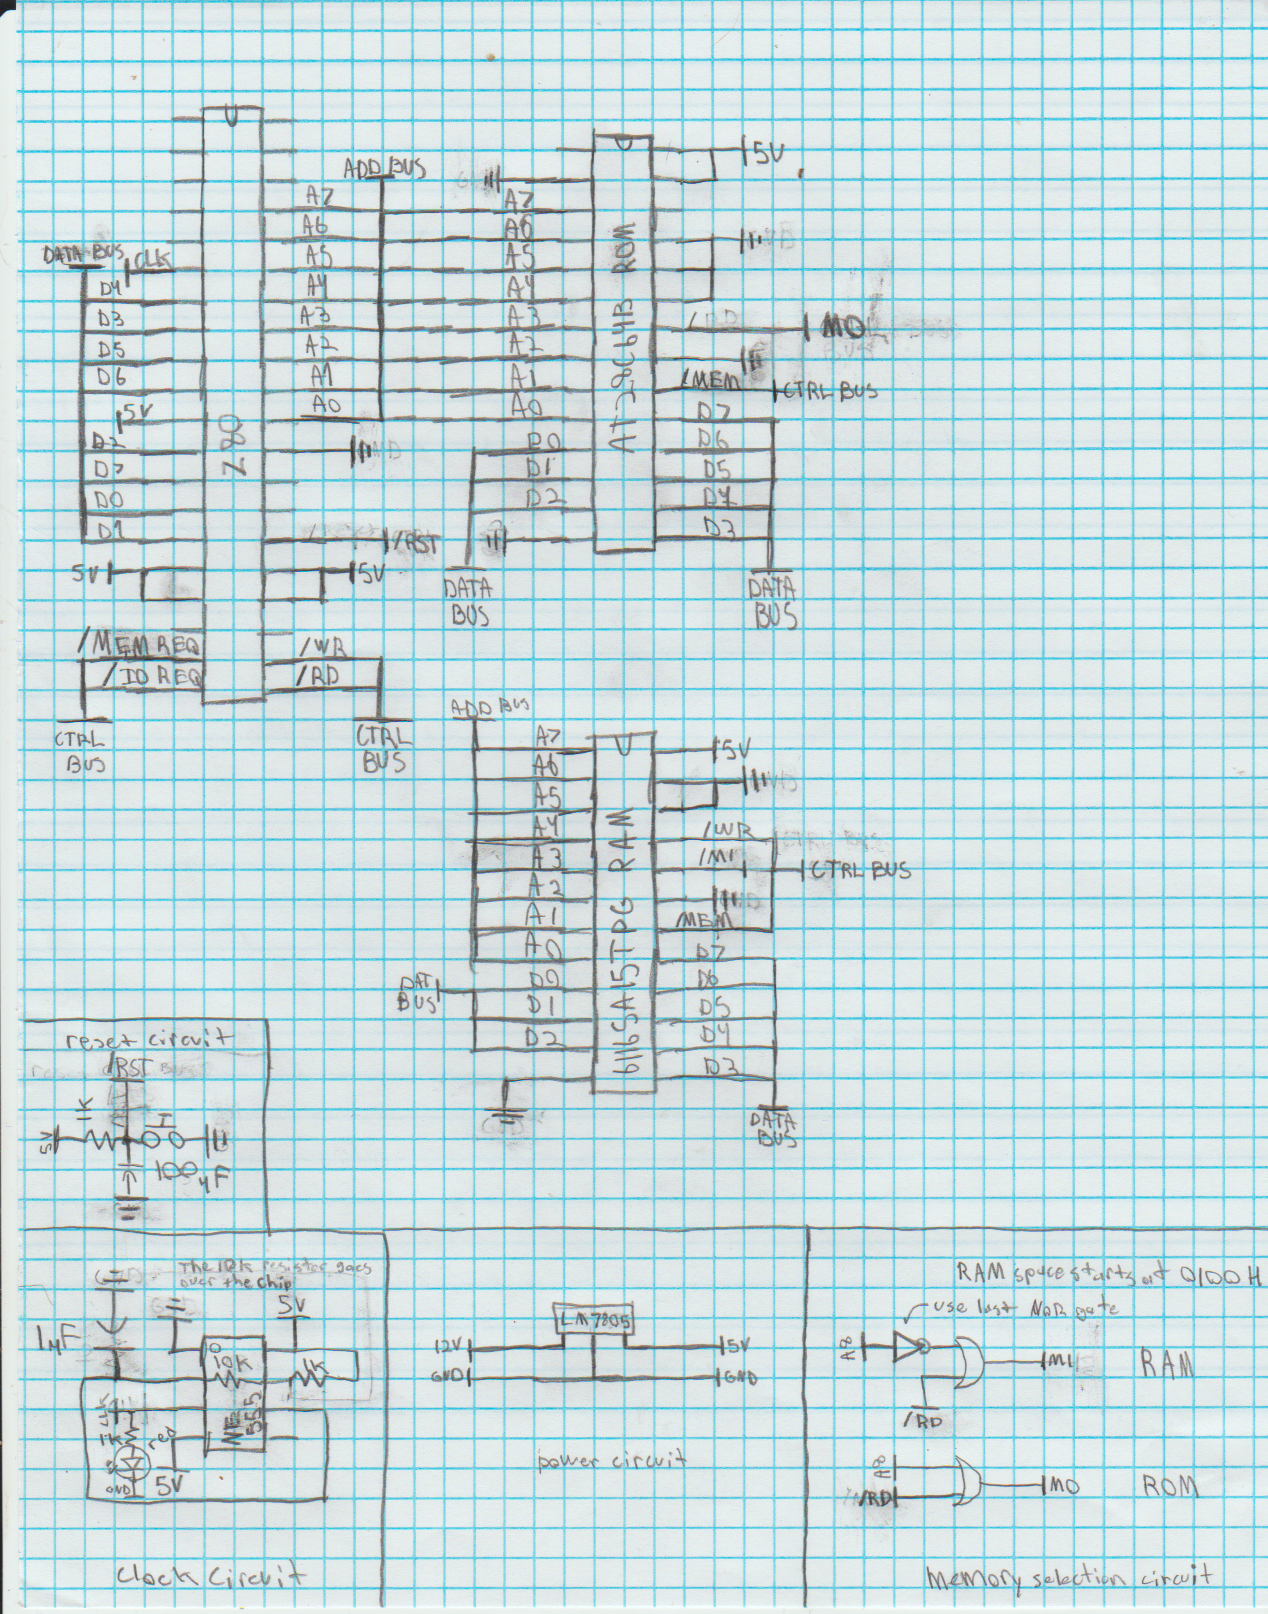 ADD BUS
A7
A6
A5
A4
A3
A2
A1
A0
DATA BUS
CLK
D4
D3
D5
D6
5V
D2
D7
D0
D1
5V
/MEM REQ
/IO REQ
CTRL
BUS
Z80
/RST
5V
/WR
/RD
CTRL
BUS
A7
A6
A5
A4
A3
A2
A1
A0
D0
D1
D2
DATA
BUS
AT28C64B ROM
5V
M0
/MEM
CTRL BUS
D7
D6
D5
D4
D3
DATA
BUS
ADD BUS
A7
A6
A5
A4
A3
A2
A1
A0
DAT
BUS
D0
D1
D2
6116SA15TPG RAM
5V
/WR
/M1
CTRL BUS
/MEM
D7
D6
D5
D4
D3
DATA
BUS
reset circuit
/RST
1K
5V
100µF
The 10k resistor goes
over the chip
5V
1µF
10K
1K
NE
555
CLK
1K
red
GND
5V
Clock Circuit
LM7805
12V
5V
GND
GND
power circuit
RAM space starts at 0100H
use last NOR gate
A8
M1
RAM
/RD
A8
/RD
M0
ROM
Memory selection circuit